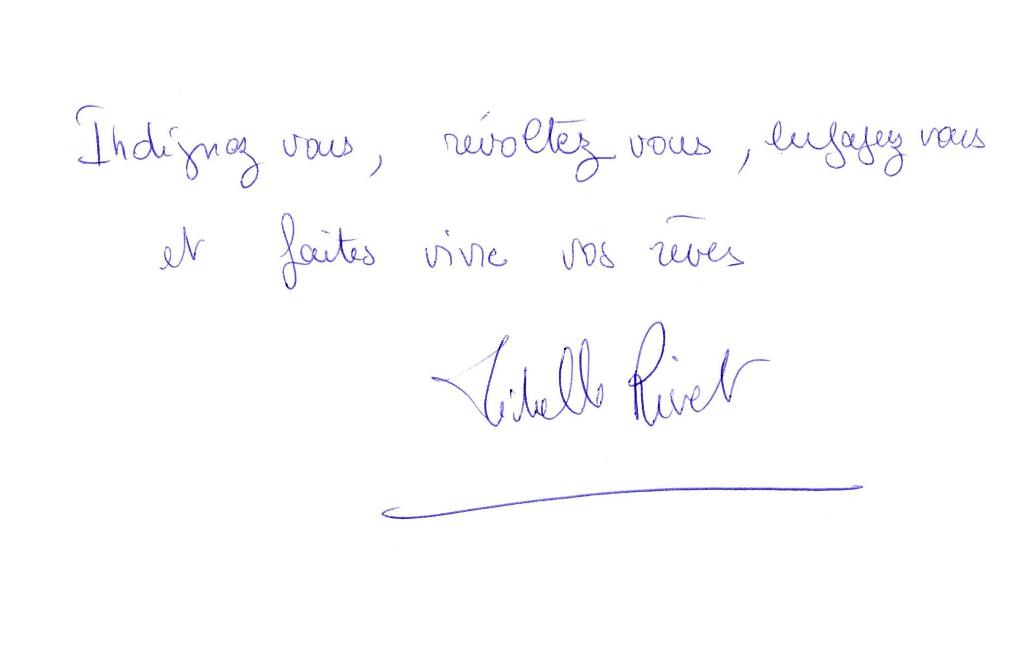 Indignez vous, révoltez vous, engagez vous
et faites vivre vos rêves
Rivet